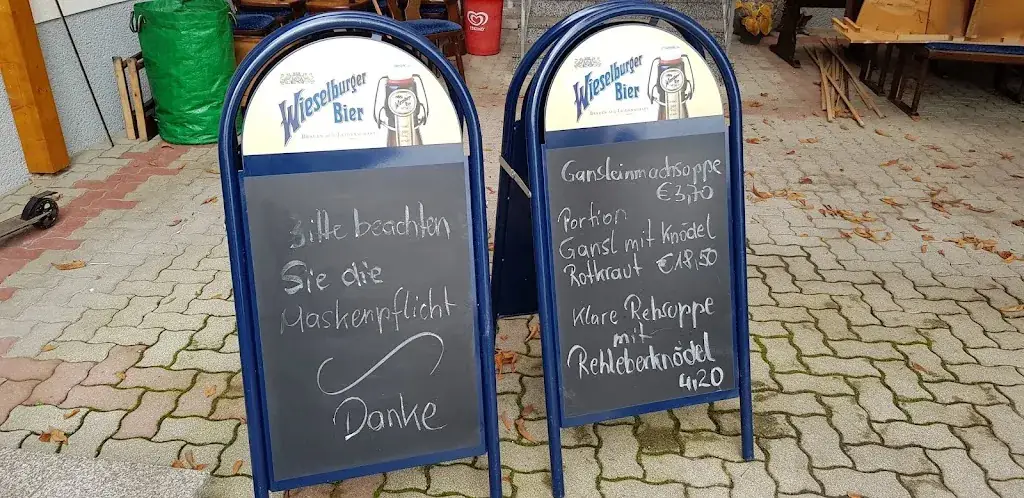 Wieselburger
Bier
Bitte beachten
Sie die
Maskenpflicht
Danke
Wieselburger
Bier
Gansleinmachsuppe
€ 3,70
Portion
Gansl mit Knödel
Rotkraut € 18,50
Klare Rehsuppe
mit
Rehleberknödel
4,20